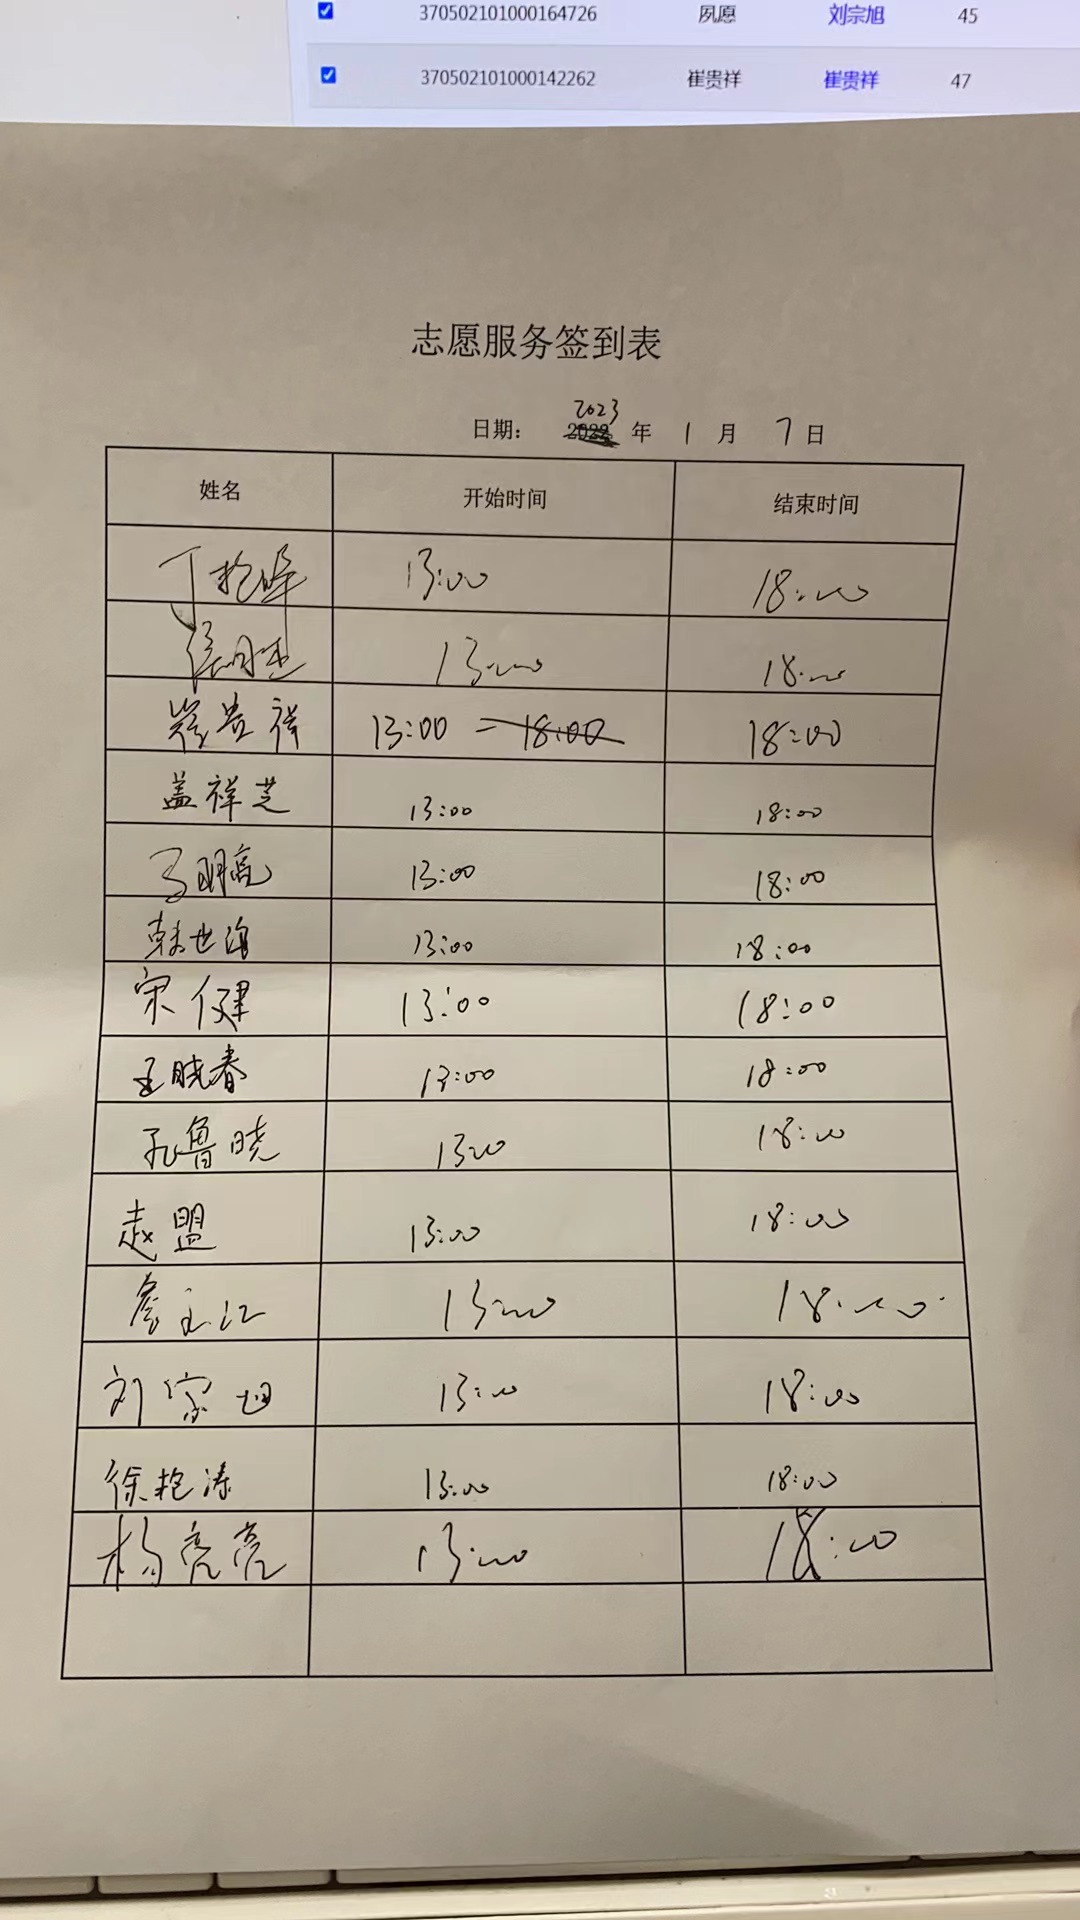 370502101000164726 夙愿 刘宗旭 45
370502101000142262 崔贵祥 崔贵祥 47
志愿服务签到表
2023
日期： 2022 年 1 月 7 日
姓名 开始时间 结束时间
丁艳峰 13:00 18:00
13:00 18:00
崔贵祥 13:00 - 18:00 18:00
盖祥芝 13:00 18:00
马明亮 13:00 18:00
韩世海 13:00 18:00
宋健 13:00 18:00
王晓春 13:00 18:00
孔鲁晓 13:00 18:00
赵盟 13:00 18:00
13:00 18:00
刘宗旭 13:00 18:00
徐艳涛 13:00 18:00
杨亮亮 13:00 18:00